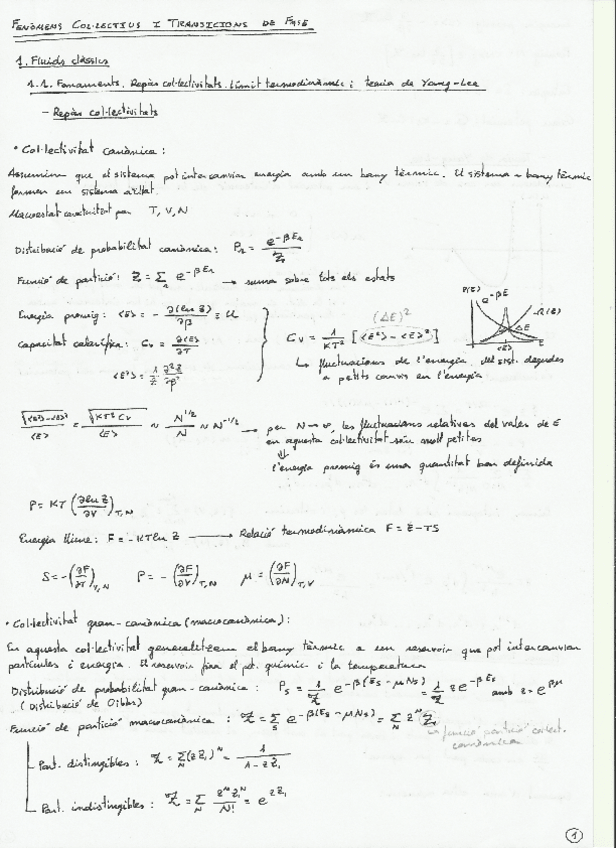 FENÒMENS COL·LECTIUS I TRANSICIONS DE FASE
1. Fluids clàssics
1.1. Fonaments. Repàs col·lectivitats. Límit termodinàmic i teoria de Yang-Lee
- Repàs col·lectivitats
• Col·lectivitat canònica:
Assumim que el sistema pot intercanviar energia amb un bany tèrmic. El sistema + bany tèrmic
formen un sistema aïllat.
Macroestat constituït per T, V, N
Distribució de probabilitat canònica: P_r = e^{-βE_r} / Z
Funció de partició: Z = Σ_r e^{-βE_r} → suma sobre tots els estats
Energia promig: <E> = - ∂(ln Z)/∂β ≡ U
Capacitat calorífica: C_V = ∂<E>/∂T
<E²> = 1/Z ∂²Z/∂β²
(ΔE)²
C_V = 1/KT² [<E²> - <E>²]
↳ fluctuacions de l'energia del sist. degudes
a petits canvis en l'energia
P(E) e^{-βE} Ω(E) ΔE <E> E
√(<E²>-<E>²) / <E> = √(KT² C_V) / <E> ≈ N^{1/2} / N ≈ N^{-1/2} → per N→∞, les fluctuacions relatives del valor de E
en aquesta col·lectivitat són molt petites
⇓
l'energia promig és una quantitat ben definida
P = KT (∂ln Z/∂V)_{T,N}
Energia lliure: F = -KT ln Z → Relació termodinàmica F = E - TS
S = -(∂F/∂T)_{V,N} P = -(∂F/∂V)_{T,N} μ = (∂F/∂N)_{T,V}
• Col·lectivitat gran-canònica (macrocanònica):
En aquesta col·lectivitat generalitzem el bany tèrmic a un reservoir que pot intercanviar
partícules i energia. El reservoir fixa el pot. químic i la temperatura
Distribució de probabilitat gran-canònica: P_s = 1/𝒵 e^{-β(E_s - μN_s)} = 1/𝒵 z e^{-βE_s} amb z = e^{βμ}
(Distribució de Gibbs)
Funció de partició macrocanònica: 𝒵 = Σ_s e^{-β(E_s - μN_s)} = Σ_N z^N Z_1
↳ funció partició col·lect.
canònica
Part. distingibles: 𝒵 = Σ_N (zZ_1)^N = 1 / (1 - zZ_1)
Part. indistingibles: 𝒵 = Σ_N z^N Z_1^N / N! = e^{zZ_1}
1